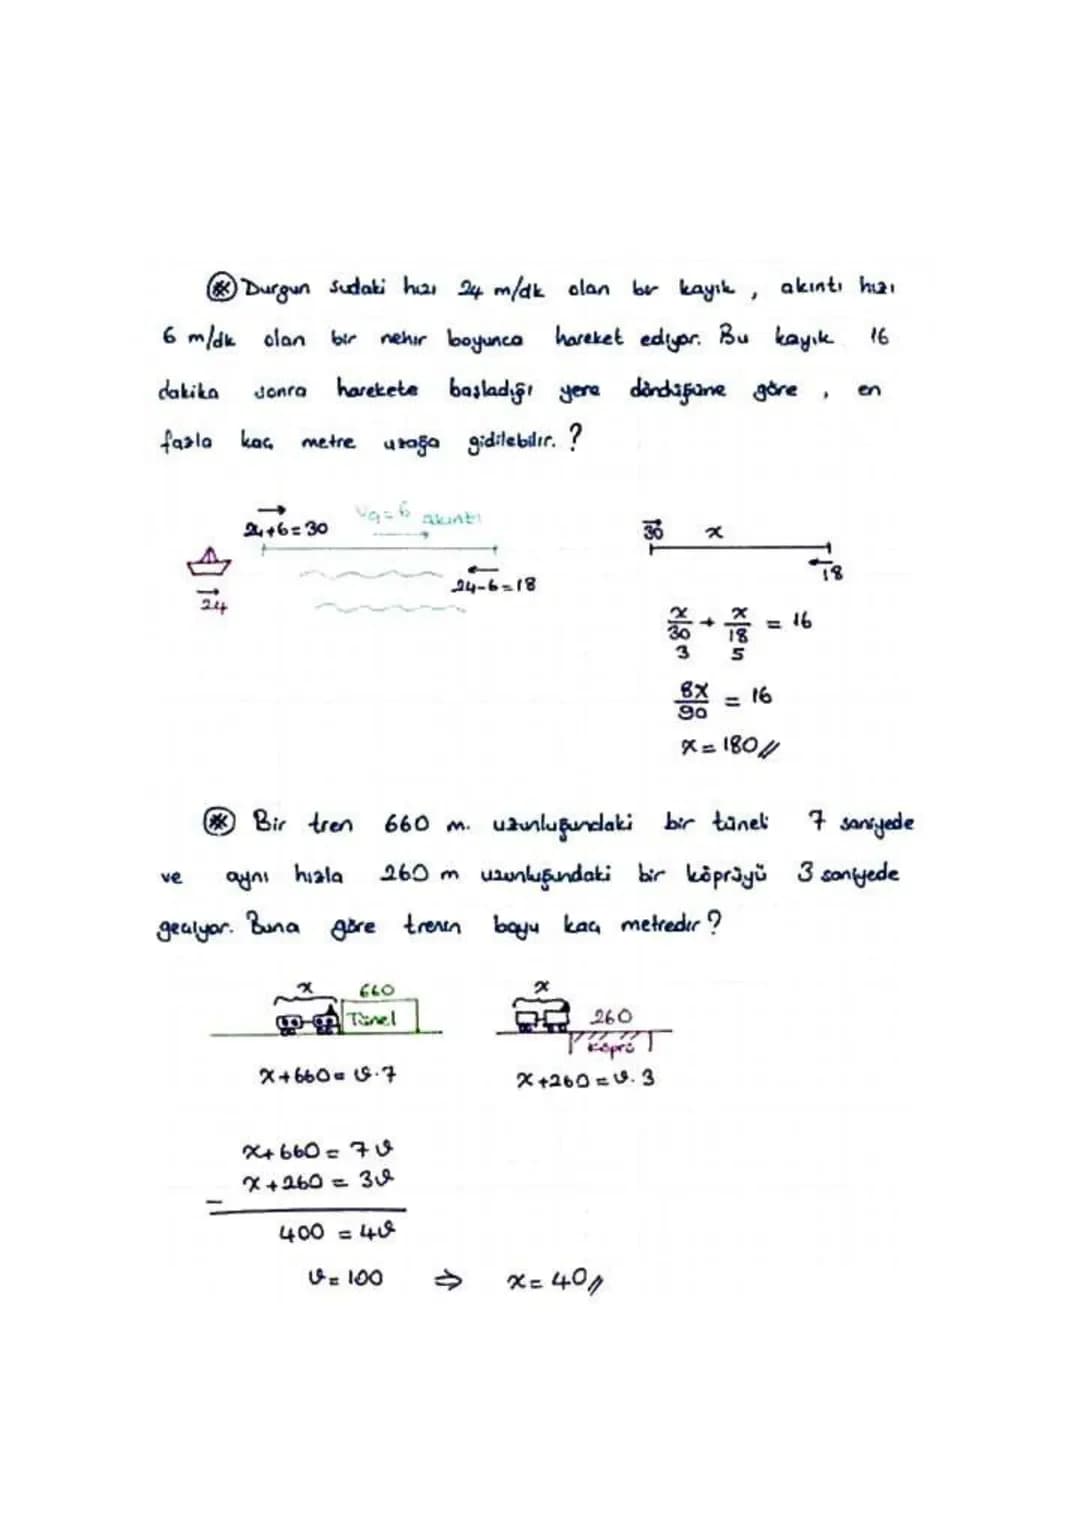 ⊛ Durgun sudaki hızı 24 m/dk olan bir kayık, akıntı hızı
6 m/dk olan bir nehir boyunca hareket ediyor. Bu kayık 16
dakika sonra harekete başladığı yere döndüğüne göre, en
fazla kaç metre uzağa gidilebilir.?
24+6=30
Va=6 akıntı
24-6=18
24
30 x
18
x/30 + x/18 = 16
3 5
8x/90 = 16
x=180//
⊛ Bir tren 660 m. uzunluğundaki bir tüneli 7 saniyede
ve aynı hızla 260 m uzunluğundaki bir köprüyü 3 saniyede
geçiyor. Buna göre trenin boyu kaç metredir?
x 660
Tünel
x
260
Köprü
x+660=v.7
x+260=v.3
x+660=7v
x+260=3v
-
400=4v
v=100 ⇒ x=40//